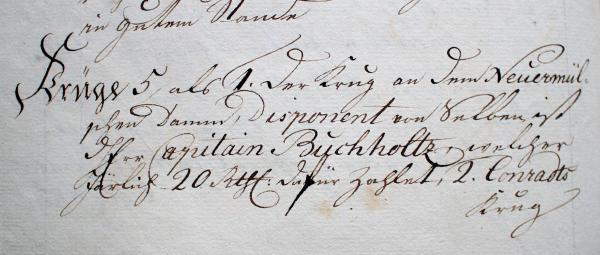 in gutem Stande
Krüge 5, als 1. Der Krug an dem Neuermül-
schen Damm, Disponent von Selben ist
Capitain Buchholtz, welcher
Järlich 20 Rthl. dafür zahlet, 2. Conradts
Krug